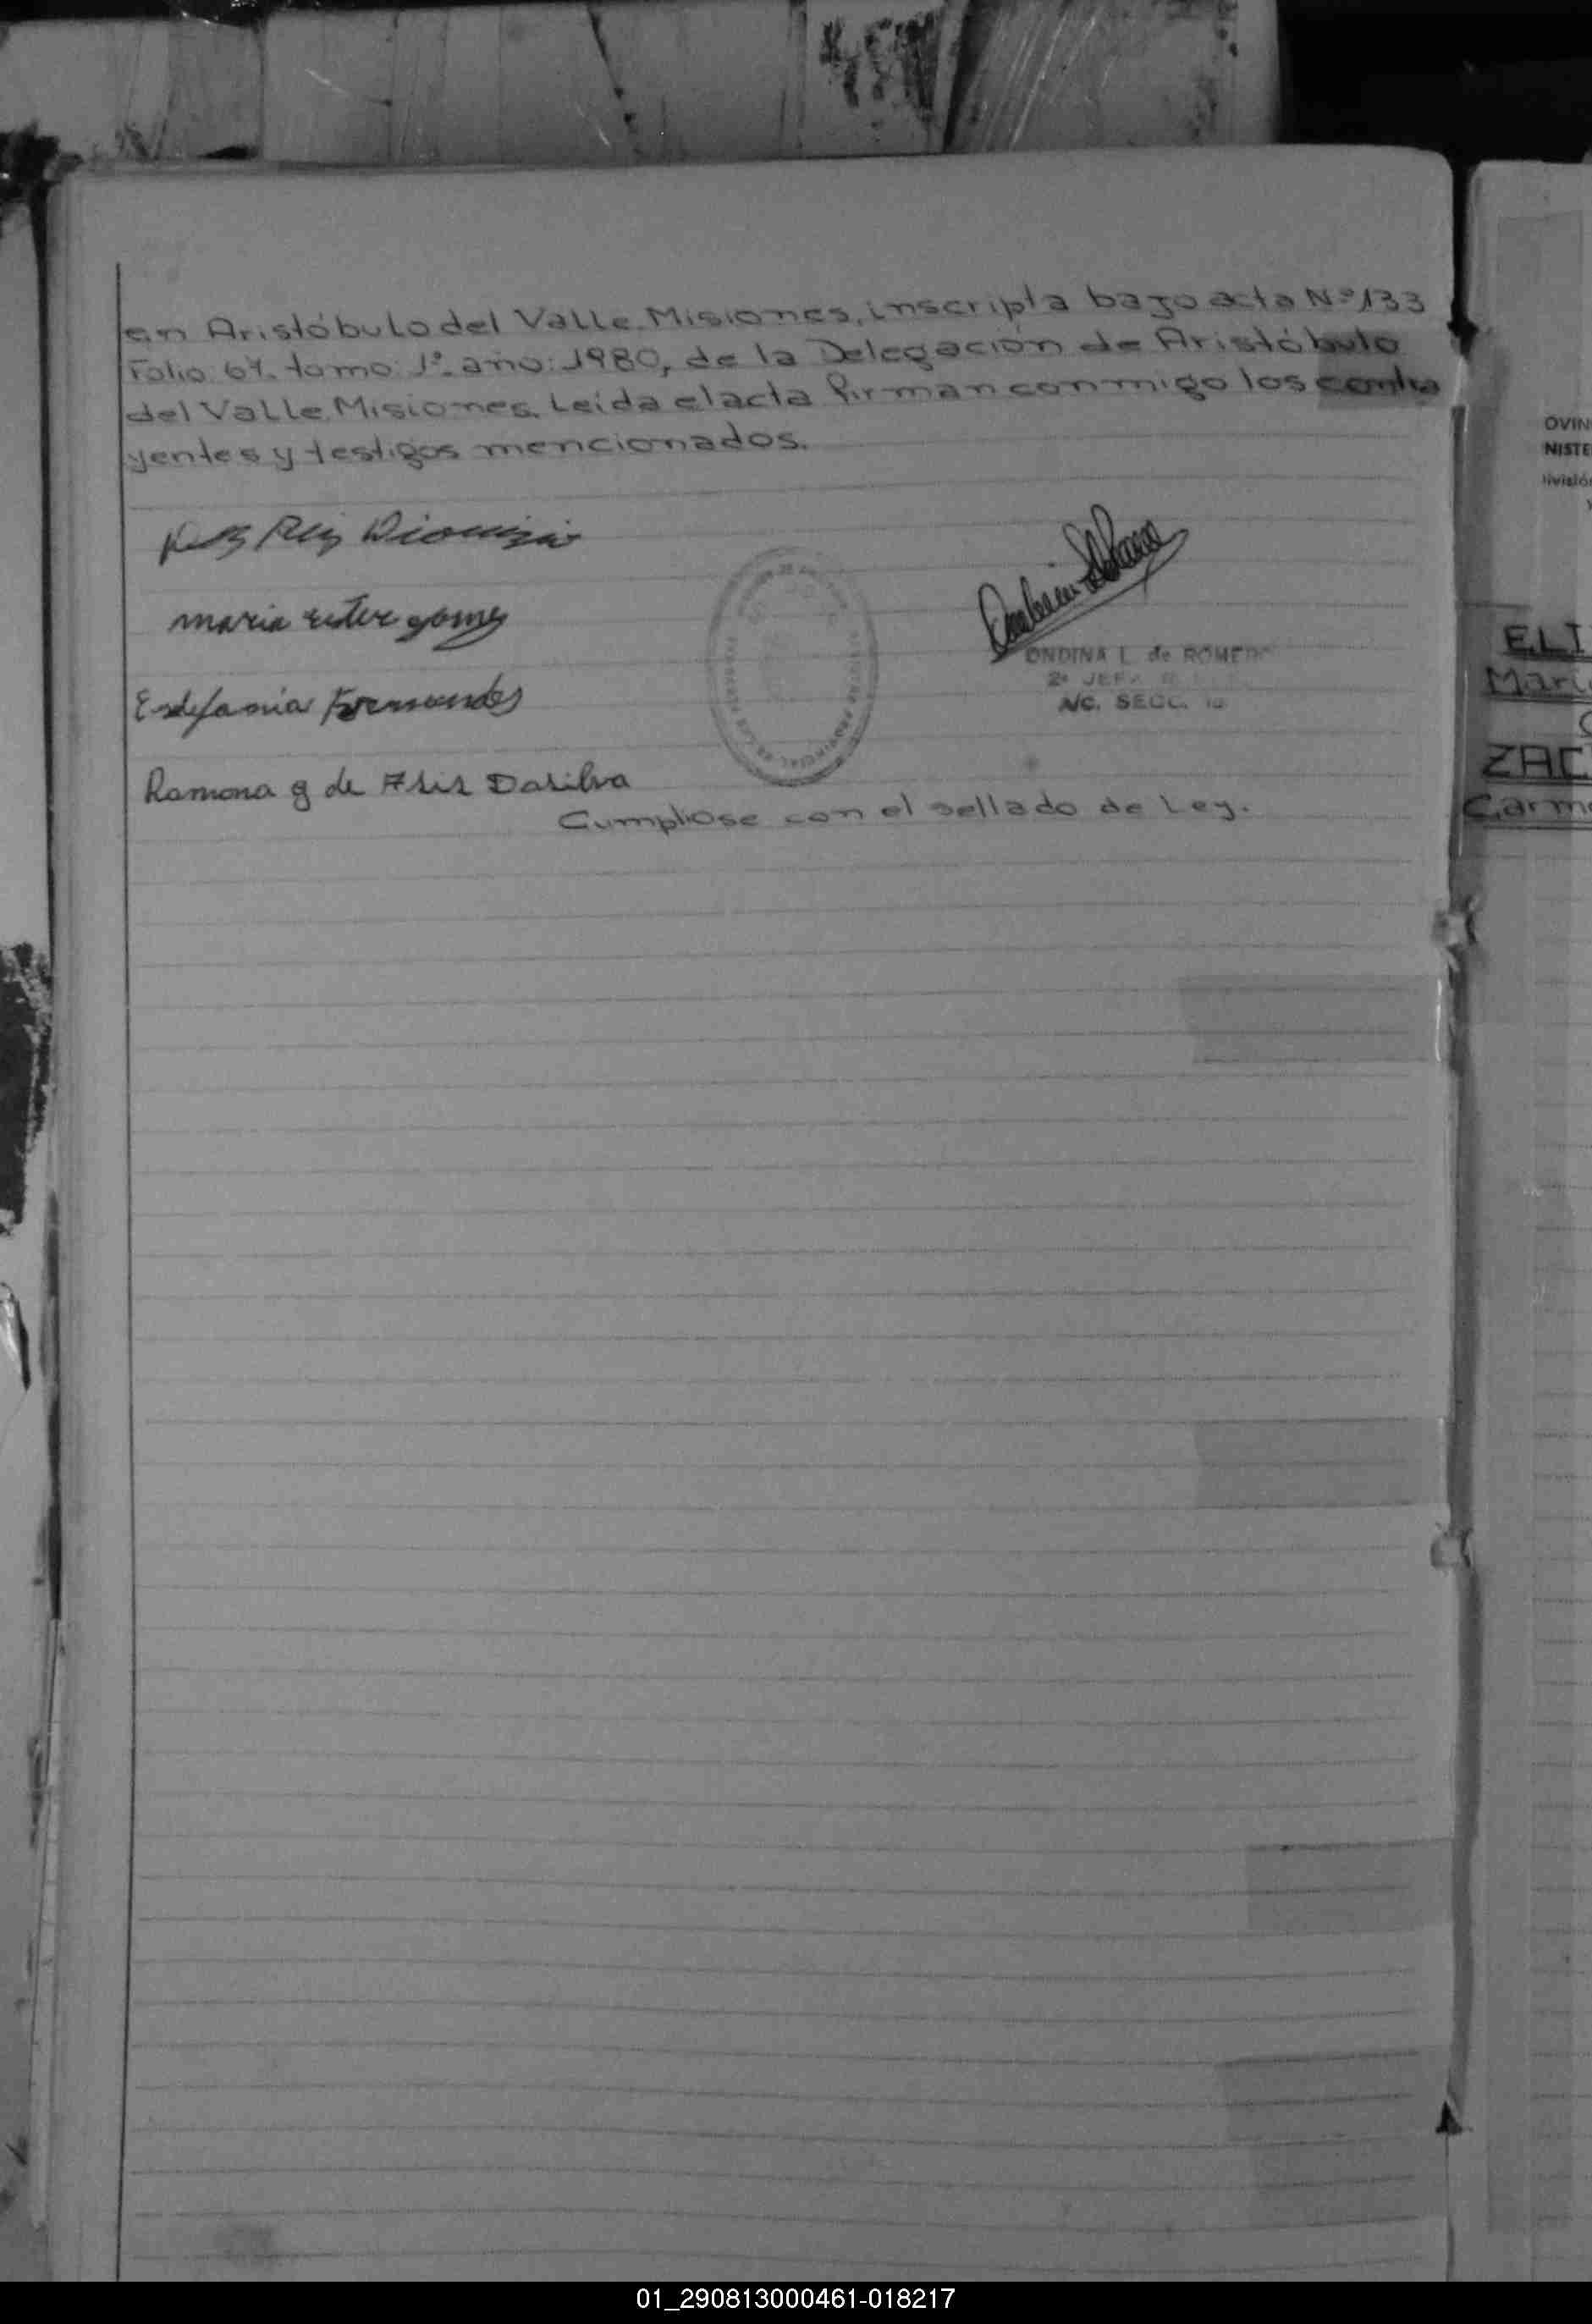 en Aristóbulo del Valle. Misiones, inscripta bajo acta Nº 133
Folio: 67. tomo: 1º. año: 1980, de la Delegación de Aristóbulo
del Valle, Misiones. Leída el acta firman conmigo los contra
yentes y testigos mencionados.
Dionizio
maria ester gomez
Estefania Fernandes
Ramona g de Asis Dasilva
ONDINA L. de ROMERO
2º JEFA
A/C. SECC.
Cumpliose con el sellado de Ley.
OVIN
NISTE
ivisió
ELI
Mari
ZAC
Carm
01_290813000461-018217